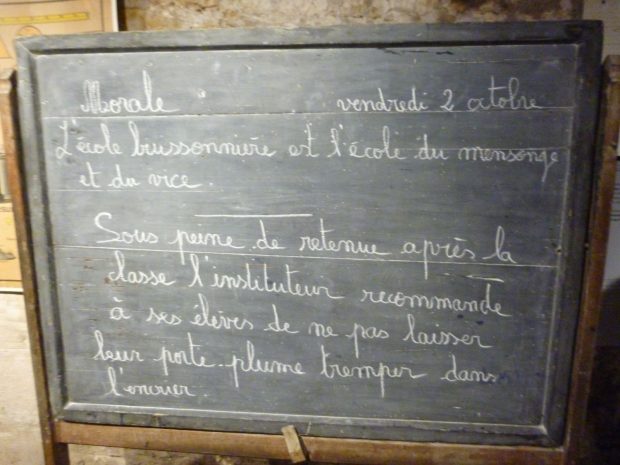 Morale vendredi 2 octobre
L'école buissonnière est l'école du mensonge
et du vice.
Sous peine de retenue après la
classe l'instituteur recommande
à ses élèves de ne pas laisser
leur porte-plume tremper dans
l'encrier.